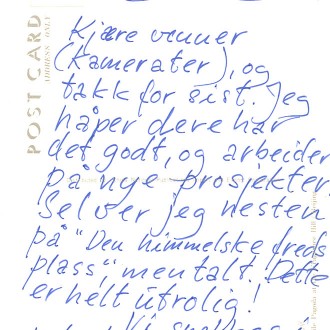 POST CARD
ADDRESS ONLY
Kjære venner
(kamerater), og
takk for sist. Jeg
håper dere har
det godt, og arbeider
på nye prosjekter.
Selv er jeg nesten
på "Den himmelske freds
plass", mentalt. Dette
er helt utrolig!